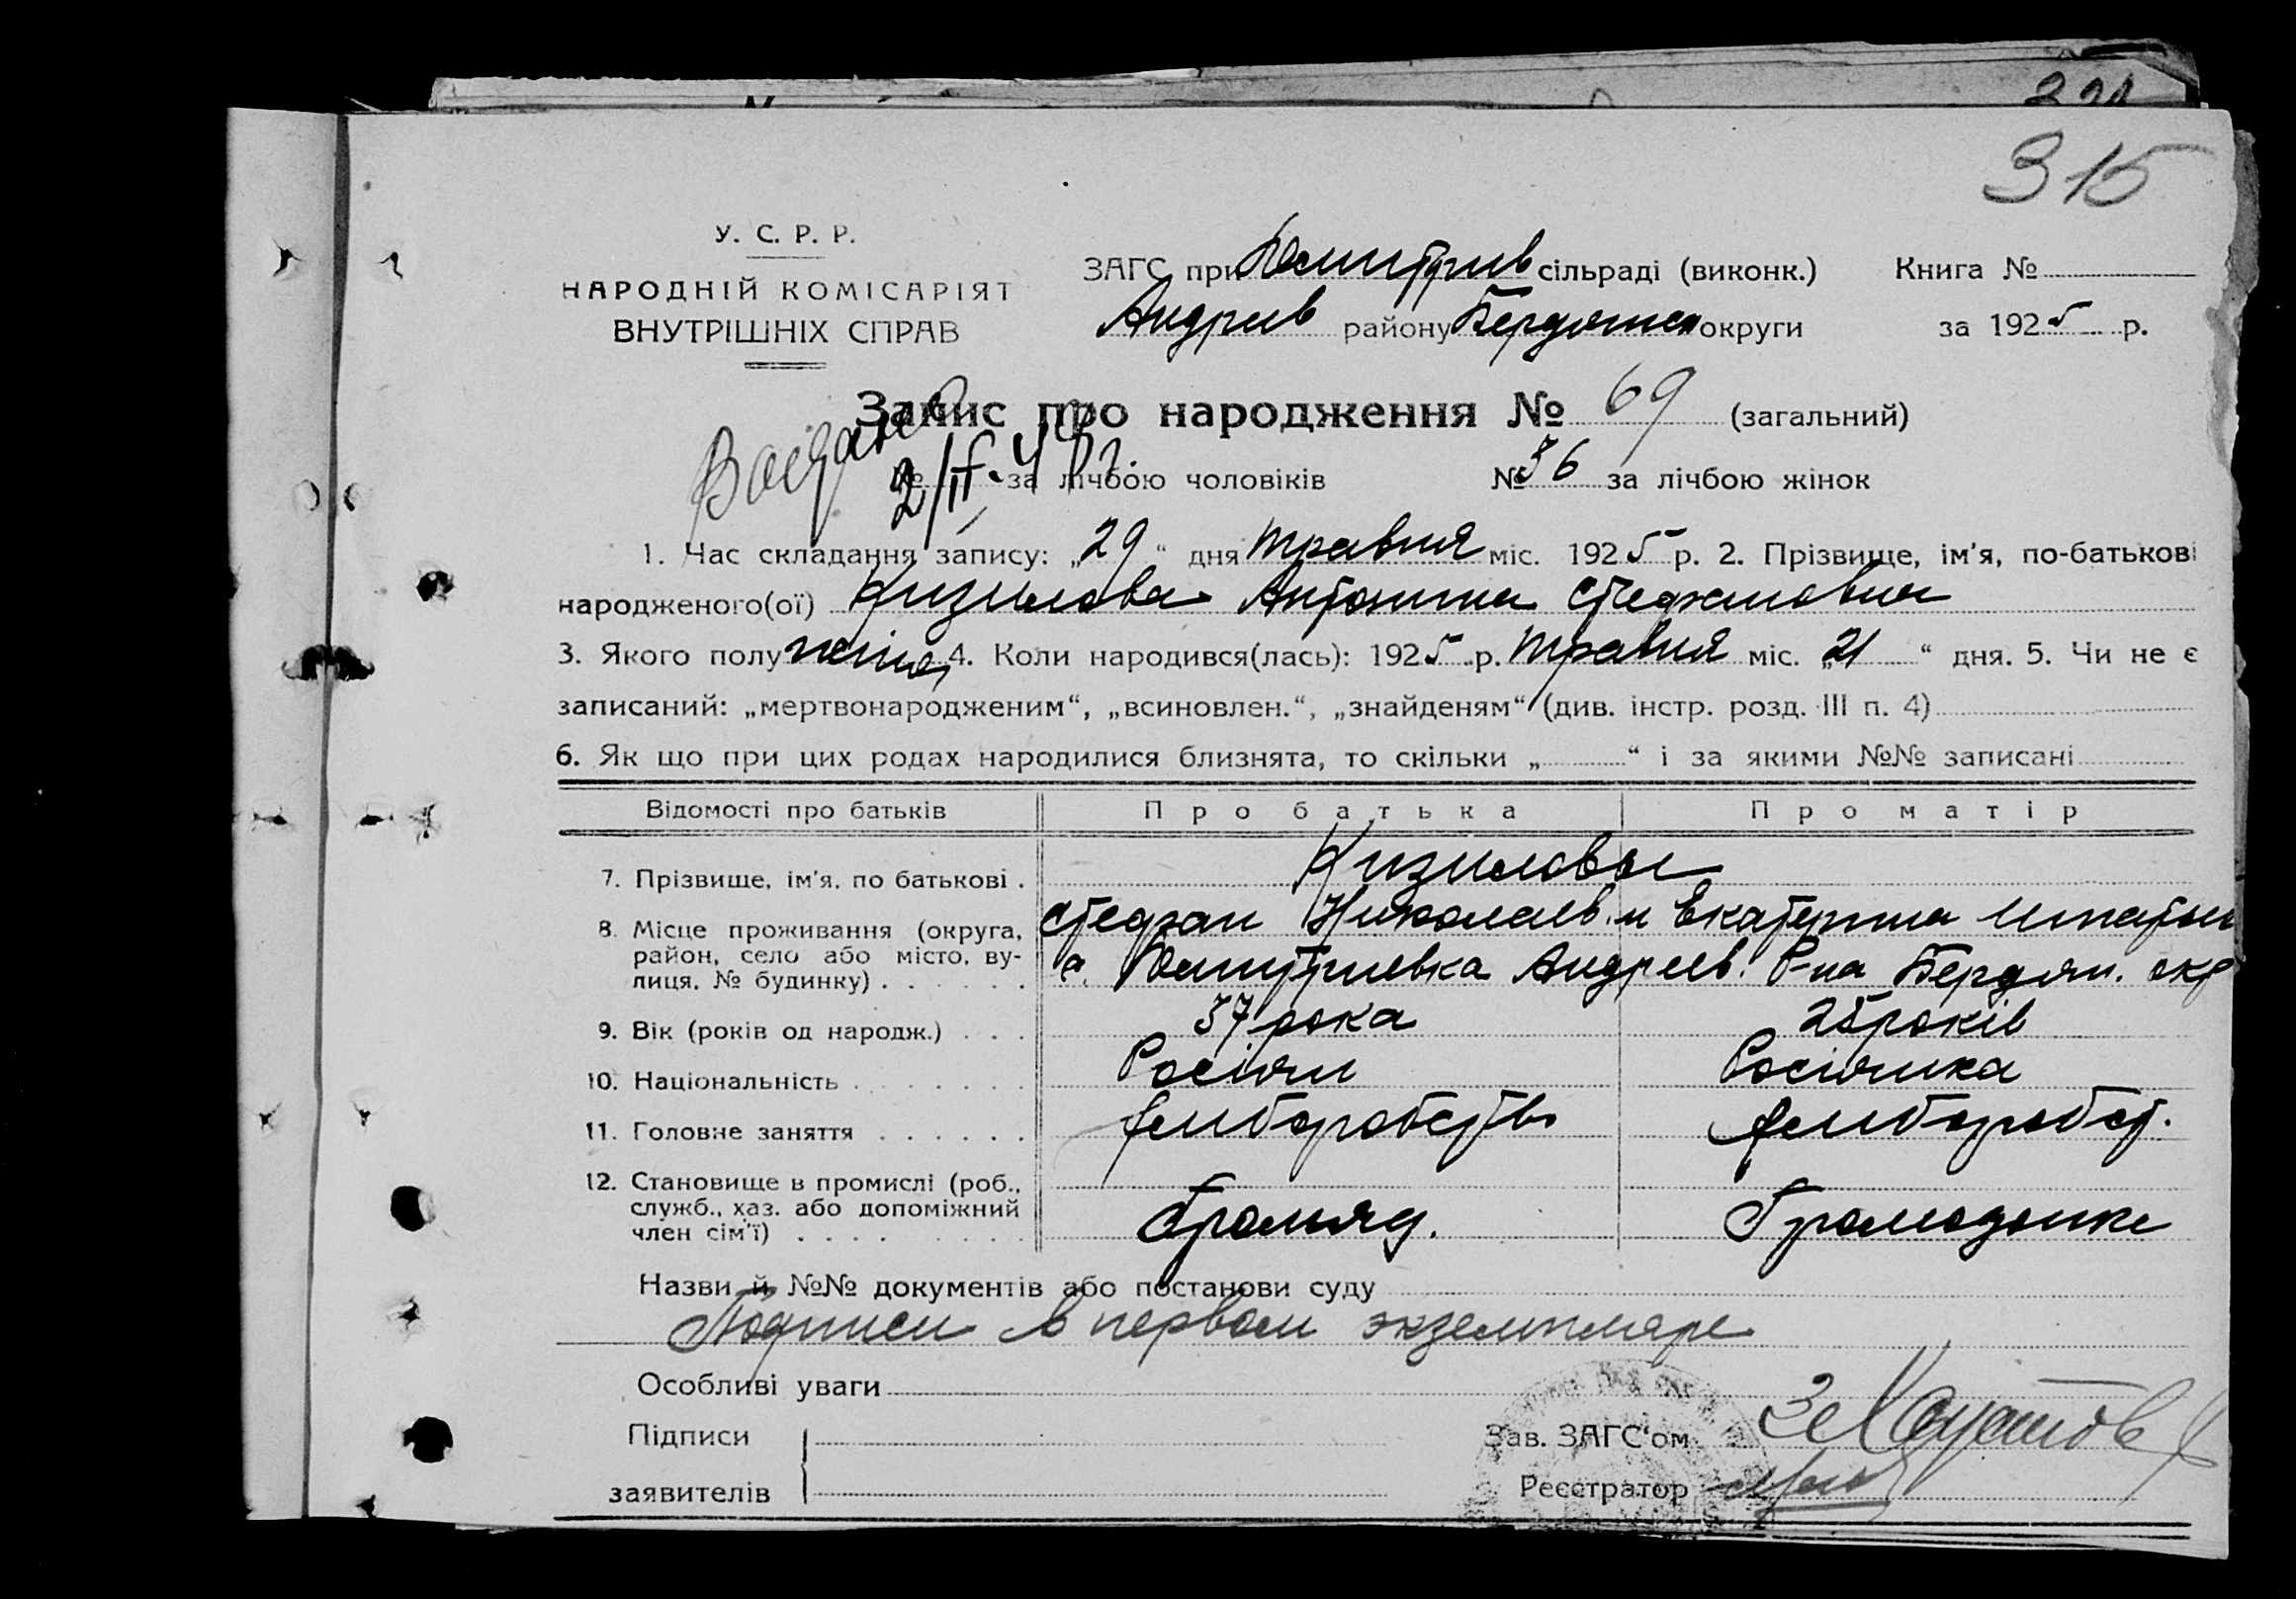 321
315
У. С. Р. Р.
НАРОДНІЙ КОМІСАРІЯТ
ВНУТРІШНІХ СПРАВ
ЗАГС при Дмитрив сільраді (виконк.) Книга №
Андрив району Бердянск округи за 1925 р.
Запис про народження № 69 (загальний)
№ за лічбою чоловіків № 36 за лічбою жінок
1. Час складання запису: „29“ дня травня міс. 1925 р. 2. Прізвище, ім'я, по-батькові
народженого(ої) Кизилова Антонина Стефановна
3. Якого полу жіноч 4. Коли народився(лась): 1925 р. травня міс. „21“ дня. 5. Чи не є
записаний: „мертвонародженим“, „всиновлен.“, „знайденям“ (див. інстр. розд. III п. 4)
6. Як що при цих родах народилися близнята, то скільки „ “ і за якими №№ записані
Відомості про батьків Про батька Про матір
7. Прізвище, ім'я, по батькові . Кизиловы
Стефан Николаев. и Екатерина Игнатьи
8. Місце проживання (округа, район, село або місто, вулиця, № будинку) . . . . . . с. Дмитриевка Андреев. Р-на Бердян. окр
9. Вік (років од народж.) . . . 37 рока 25 років
10. Національність . . . . . . . Росіян Росіянка
11. Головне заняття . . . . . . хлиборобств хлиборобст.
12. Становище в промислі (роб., служб., хаз. або допоміжний член сім'ї) . . . . Громяд. Громодонке
Назви й №№ документів або постанови суду
Подписи в первом экземпляре
Особливі уваги
Підписи
заявителів
Зав. ЗАГС'ом
Реєстратор